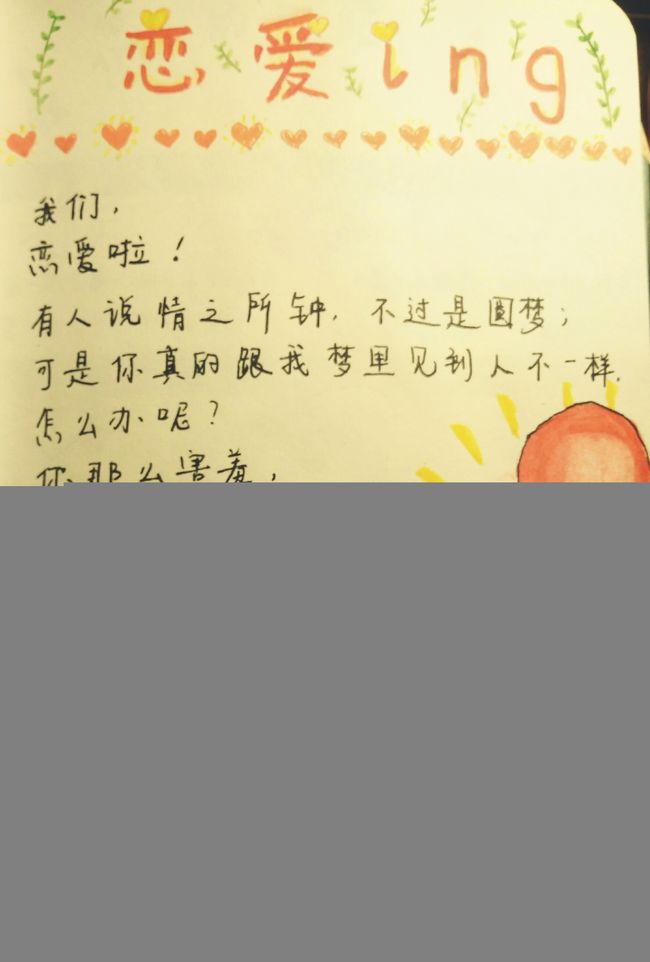 恋爱ing
我们，
恋爱啦！
有人说情之所钟，不过是圆梦；
可是你真的跟我梦里见到人不一样，
怎么办呢？
你那么害羞，